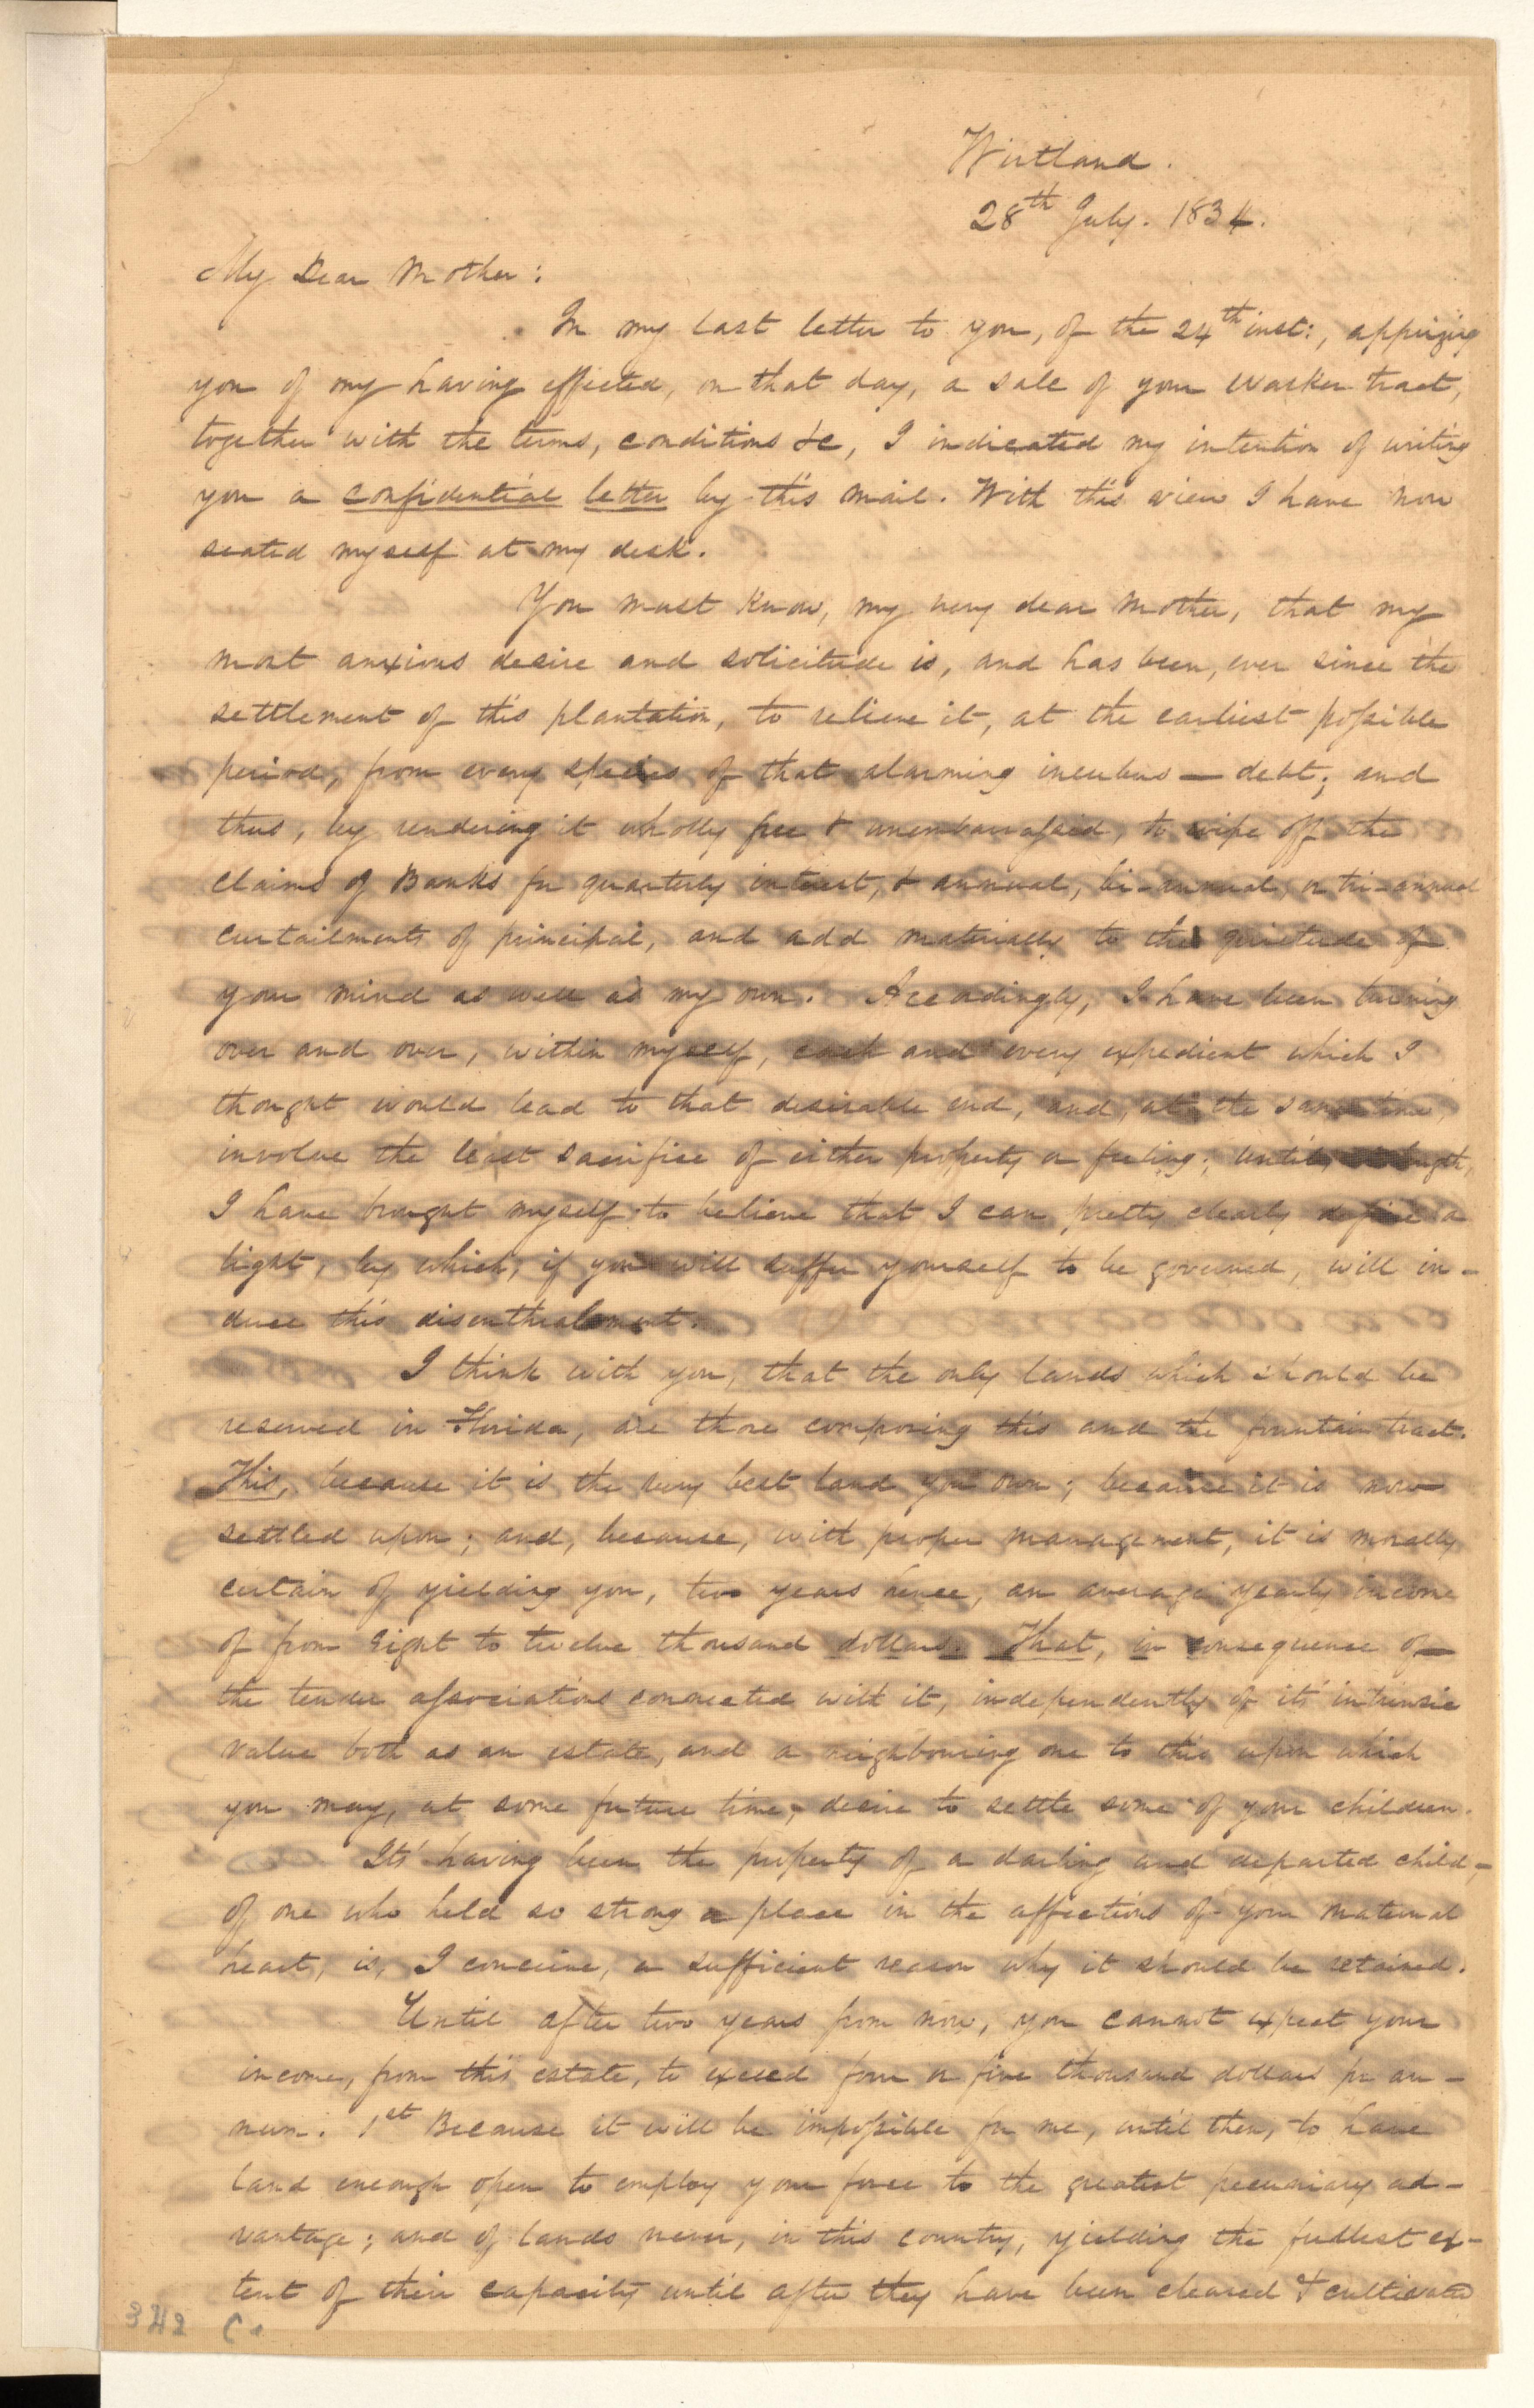 Wirtland.
28th July. 1834.
My Dear Mother:
In my last letter to you, of the 24th inst:, apprizing
you of my having effected, on that day, a sale of your Walker tract,
together with the terms, conditions &c, I indicated my intention of writing
you a confidential letter by this mail. With this view I have now
seated myself at my desk.
You must know, my very dear Mother, that my
most anxious desire and solicitude is, and has been, ever since the
settlement of this plantation, to relieve it, at the earliest possible
period, from every species of that alarming incubus — debt; and
thus, by rendering it wholly free & unembarrassed, to wipe off the
claims of Banks for quarterly interest, & annual, bi-annual, or tri-annual
curtailments of principal, and add materially to the quietude of
your mind as well as my own. Accordingly, I have been turning
over and over, within myself, each and every expedient which I
thought would lead to that desirable end, and, at the same time,
involve the least sacrifice of either property or feeling; until, at length,
I have brought myself to believe that I can pretty clearly define a
light, by which, if you will suffer yourself to be governed, will in-
duce this disenthralment.
I think with you, that the only lands which should be
reserved in Florida, are those composing this and the fountain tract.
This, because it is the very best land you own; because it is now
settled upon; and, because, with proper management, it is morally
certain of yielding you, two years hence, an average yearly income
of from eight to twelve thousand dollars. That, in consequence of
the tender associations connected with it, independently of its' intrinsic
value both as an estate, and a neighbouring one to this upon which
you may, at some future time, desire to settle some of your children.
Its' having been the property of a darling and departed child,-
of one who held so strong a place in the affections of your maternal
heart, is, I conceive, a sufficient reason why it should be retained.
Until after two years from now, you cannot expect your
income, from this estate, to exceed four or five thousand dollars pr an-
num. 1st Because it will be impossible for me, until then, to have
land enough open to employ your force to the greatest pecuniary ad-
vantage; and of lands never, in this country, yielding the fullest ex-
tent of their capacity until after they have been cleared & cultivated
342 C.